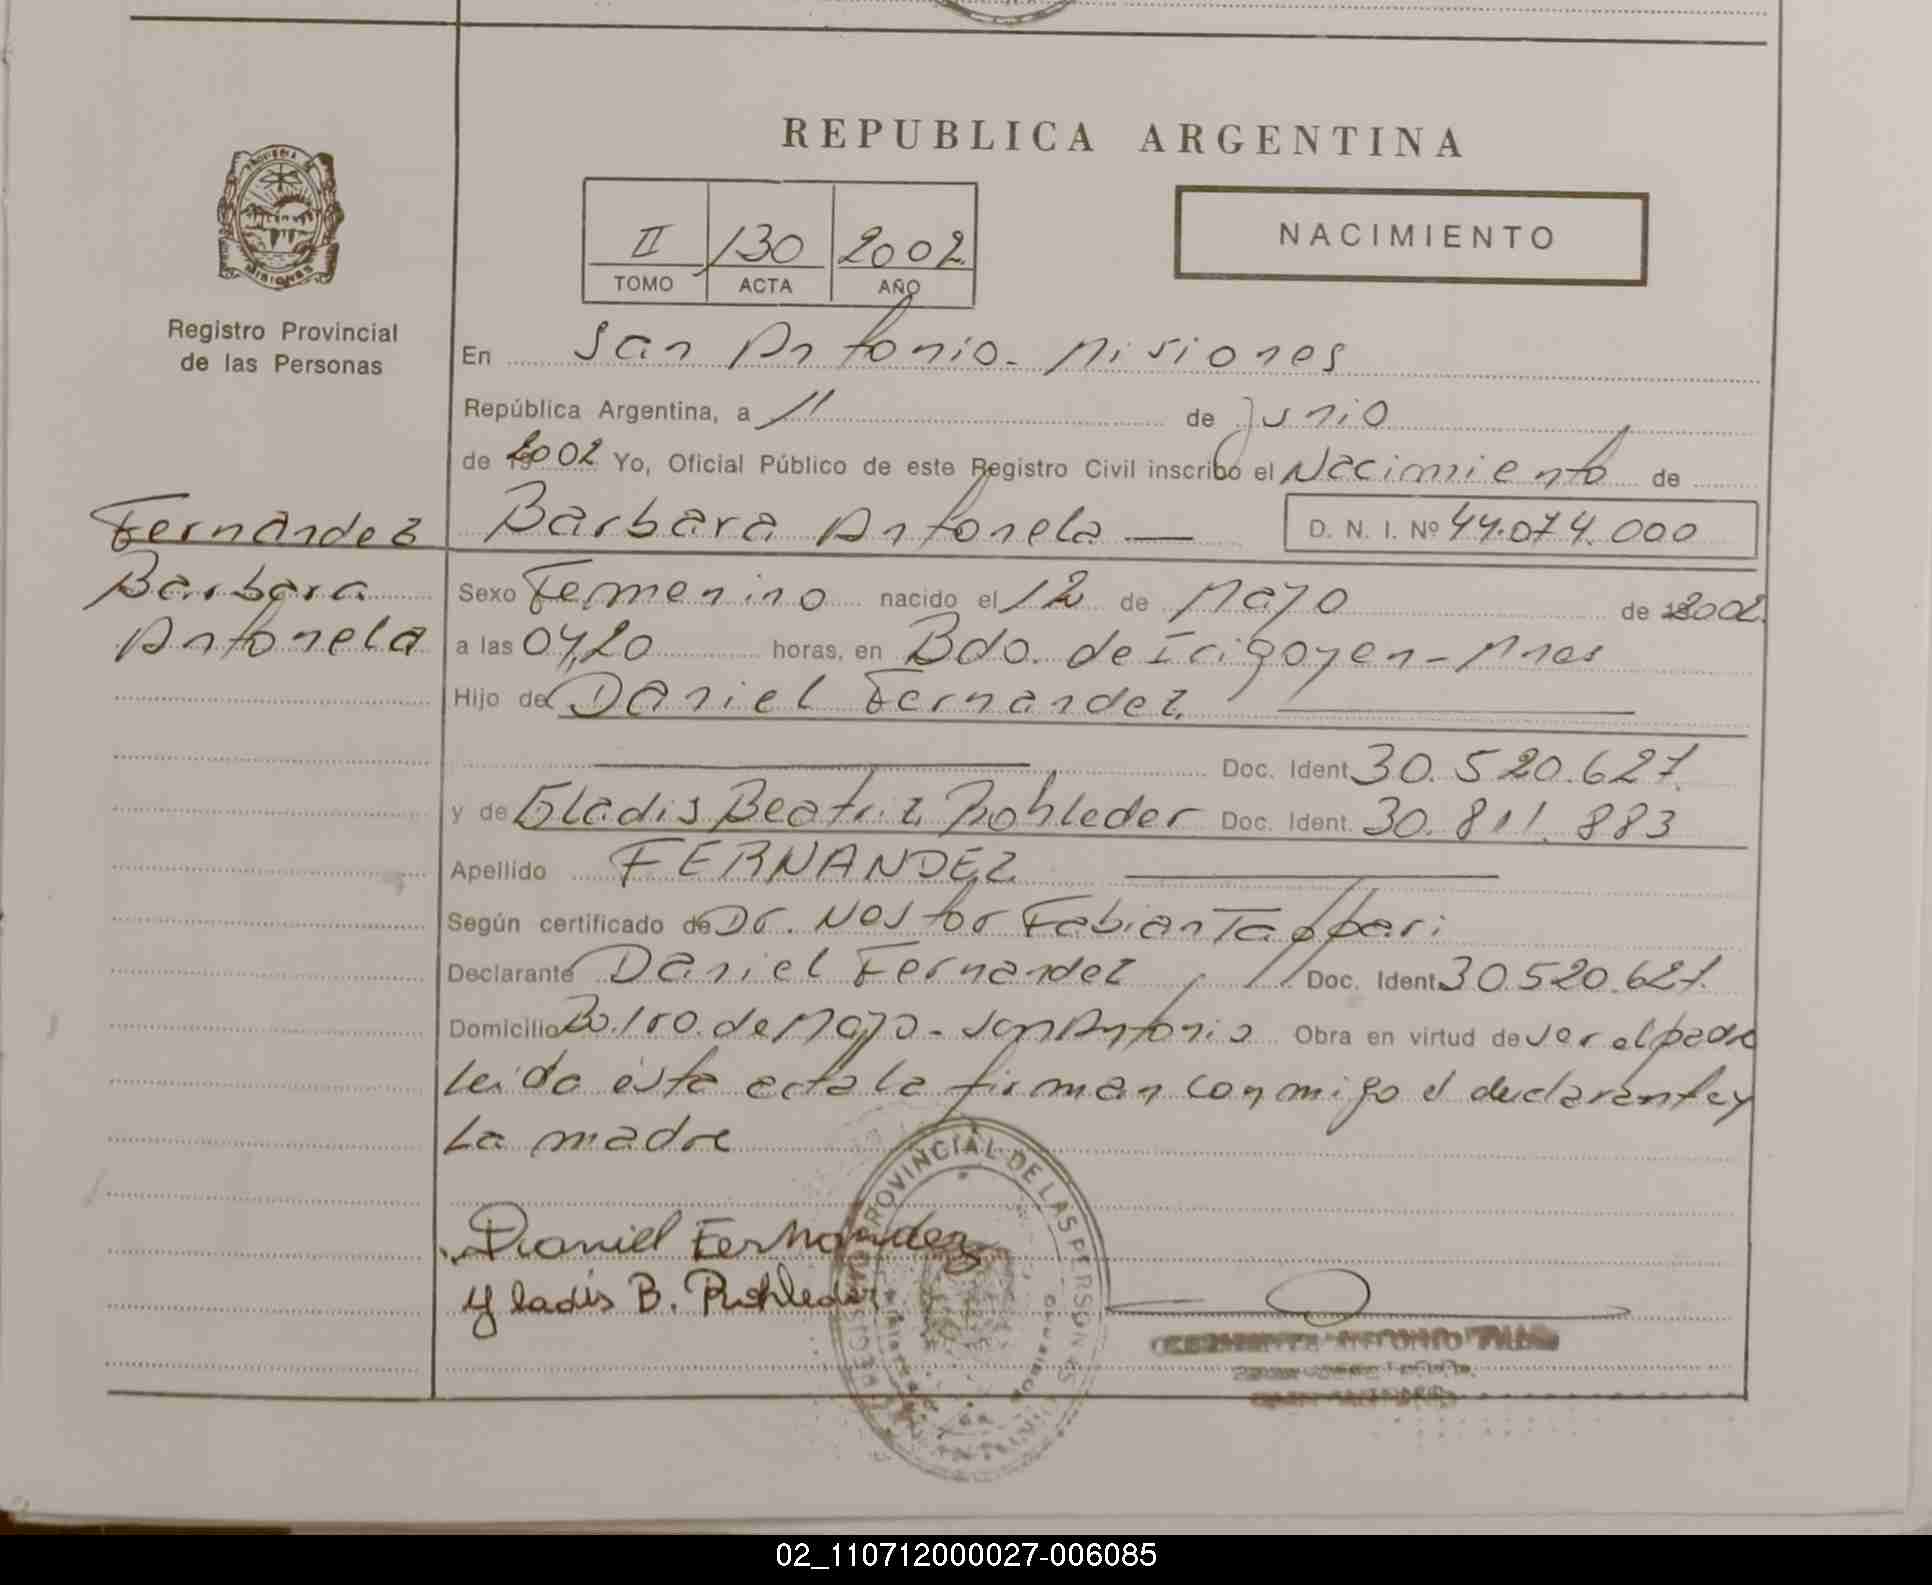 REPUBLICA ARGENTINA
II 130 2002
TOMO ACTA AÑO
NACIMIENTO
PROVINCIA DE
MISIONES
Registro Provincial
de las Personas
En San Antonio - Misiones
República Argentina, a 11 de Junio
de 2002 Yo, Oficial Público de este Registro Civil inscribo el Nacimiento de
Fernandez Barbara Antonela — D. N. I. Nº 44.074.000
Barbara
Antonela
Sexo Femenino nacido el 12 de Mayo de 2002.
a las 04,20 horas, en Bdo. de Irigoyen - Mnes
Hijo de Daniel Fernandez
Doc. Ident 30.520.627.
y de Gladis Beatriz Rohleder Doc. Ident. 30.811.883
Apellido FERNANDEZ
Según certificado de Dr. Nestor Fabian Tappari
Declarante Daniel Fernandez Doc. Ident 30.520.627.
Domicilio Bo. 1ro. de Mayo - San Antonio Obra en virtud de ser el padre
leída ésta acta la firman conmigo el declarante y
la madre
Daniel Fernandez
Gladis B. Rohleder
PROVINCIAL DE LAS PERSONAS
02_110712000027-006085